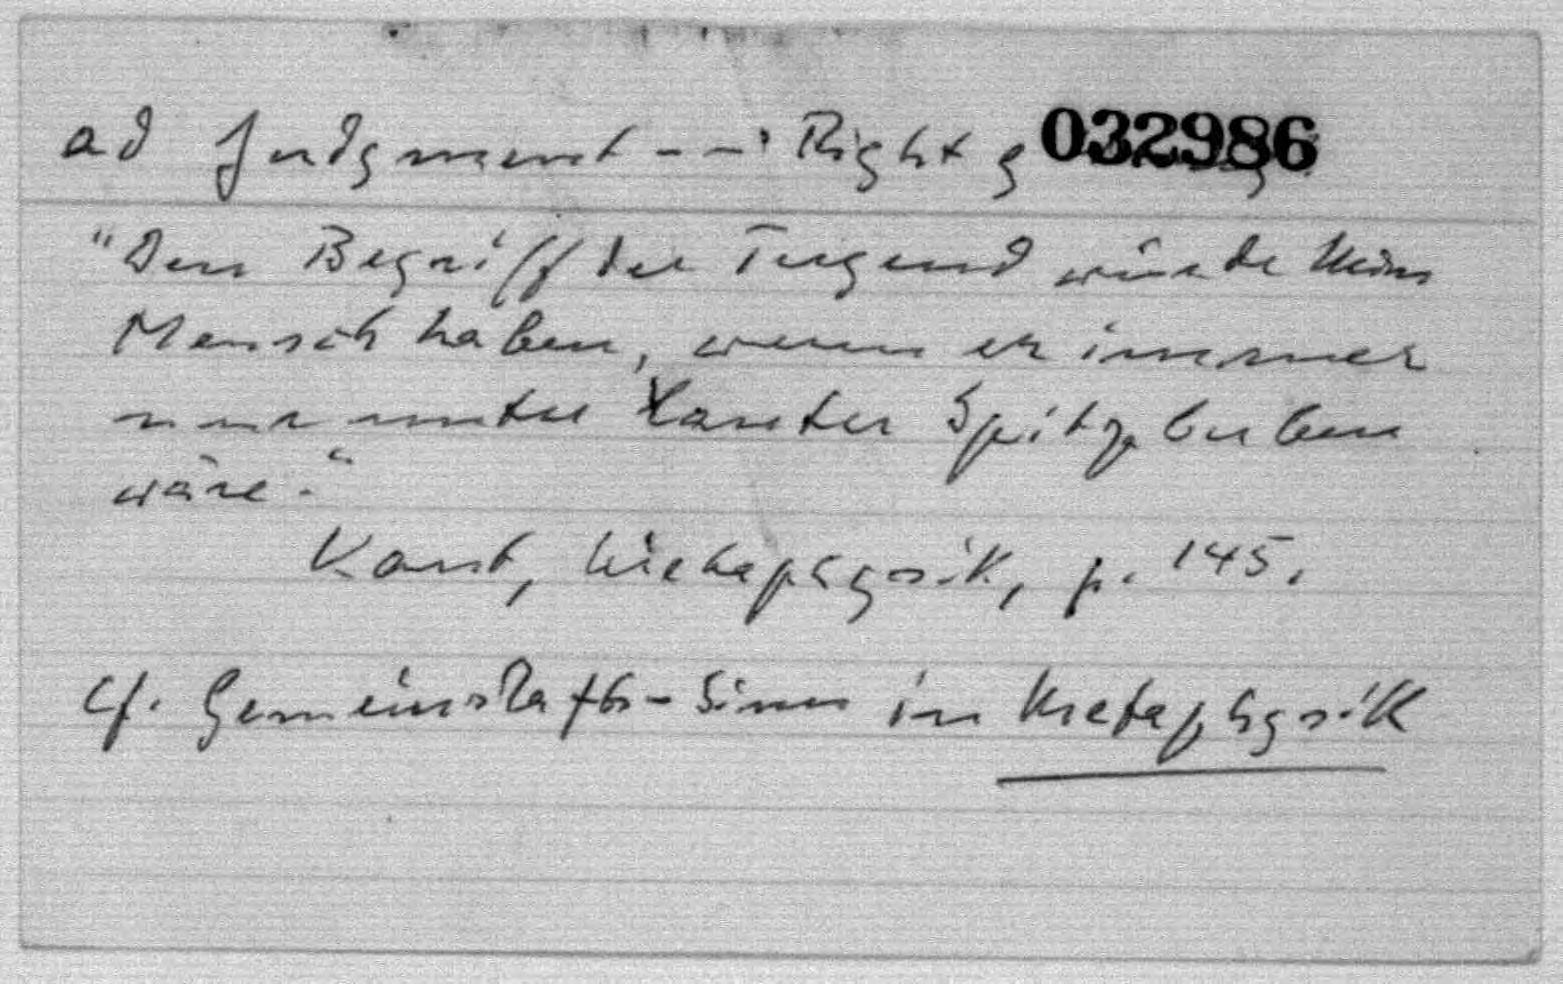 ad Judgment -- Right 032986
"Den Begriff der Tugend würde kein
Mensch haben, wenn er immer
nur unter lauter Spitzbuben
wäre."
Kant, Metaphysik, p. 145.
cf. Gemeinschafts-Sinn in Metaphysik